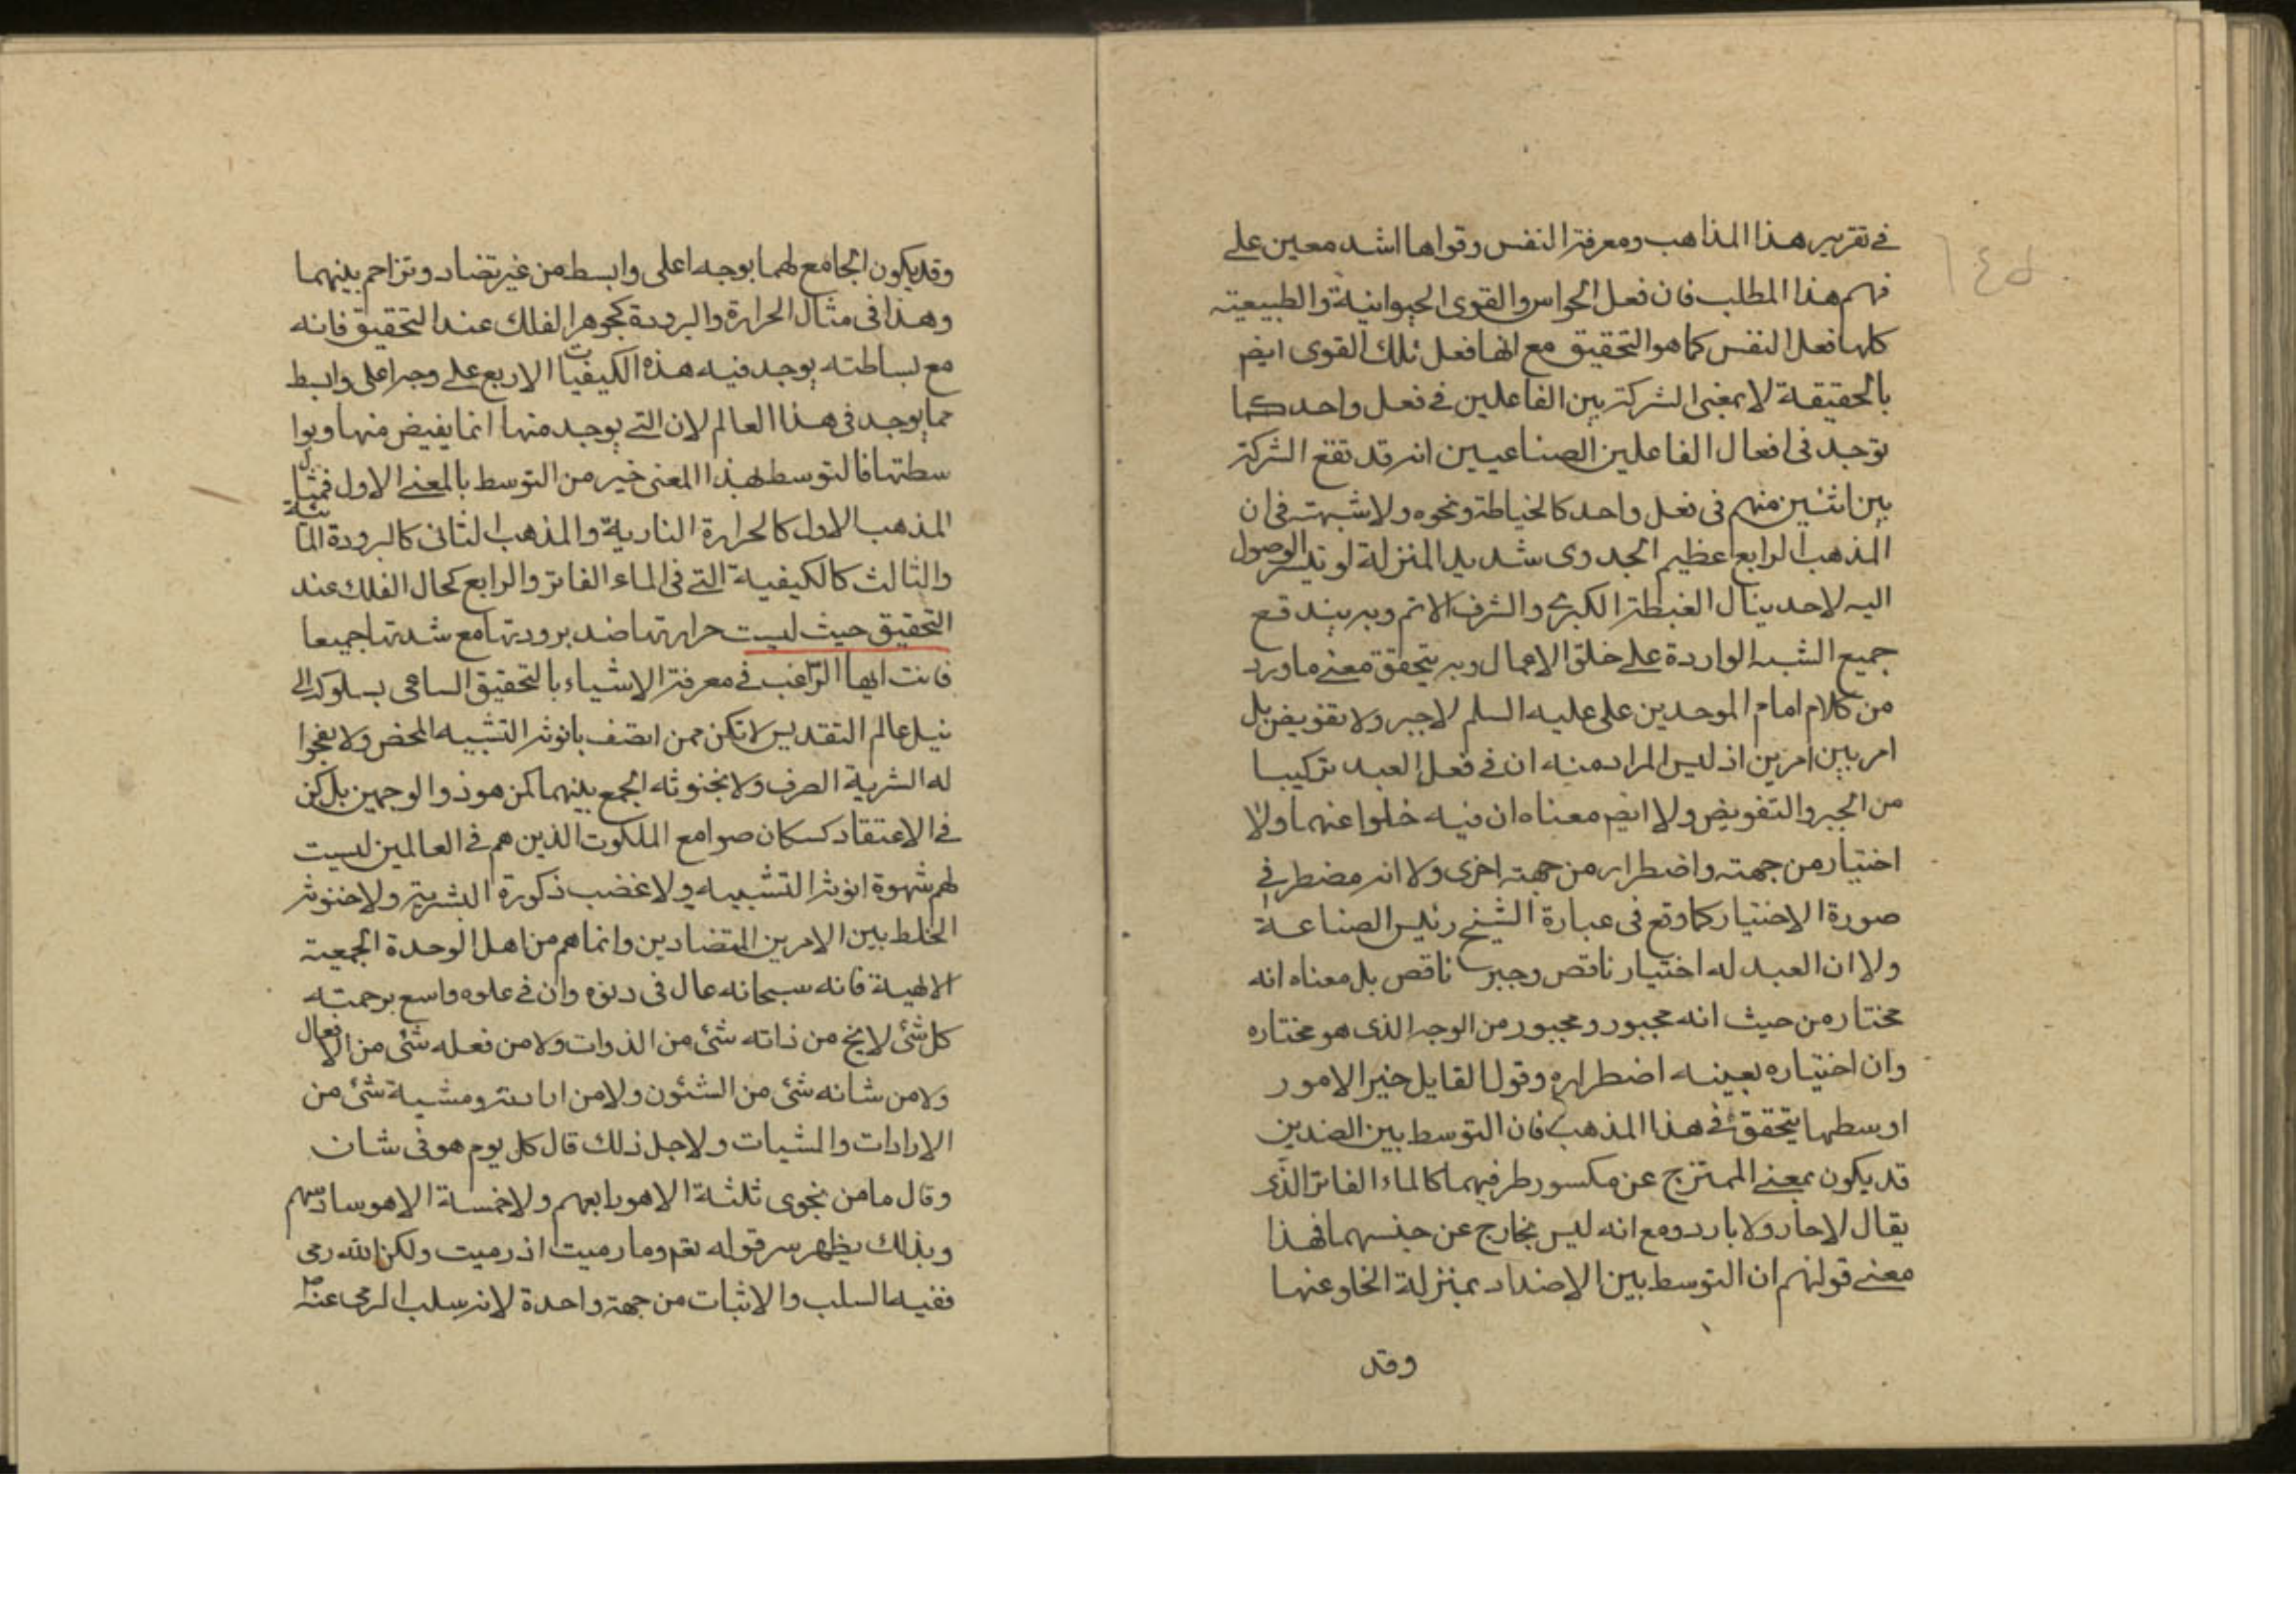 في تقرير هذا المذاهب ومعرفة النفس وقواها اشد معين على
فهم هذا المطلب فان فعل الحواس والقوى الحيوانية والطبيعية
كلها فعل النفس كما هو التحقيق مع انها فعل تلك القوى ايضم
بالحقيقة لا بمعنى الشركة بين الفاعلين في فعل واحد كما
توجد في افعال الفاعلين الصناعيين انه قد تقع الشركة
بين اثنين منهم في فعل واحد كالخياطة ونحوه ولا شبهة في ان
المذهب الرابع عظيم الجدوى شديد المنزلة لو تيسر الوصول
اليه لاحد ينال الغبطة الكبرى والشرف الاتم وبه يندفع
جميع الشبه الواردة على خلق الاعمال وبه يتحقق معنى ما ورد
من كلام امام الموحدين على عليه السلم لا جبر ولا تفويض بل
امر بين امرين اذ ليس المراد منه ان في فعل العبد تركيبا
من الجبر والتفويض ولا ايضم معناه ان فيه خلوا عنهما ولا
اختيار من جهة واضطرار من جهة اخرى ولا انه مضطر في
صورة الاختيار كما وقع في عبارة الشيخ رئيس الصناعة
ولا ان العبد له اختيار ناقص وجبر ناقص بل معناه انه
مختار من حيث انه مجبور ومجبور من الوجه الذي هو مختاره
وان اختياره بعينه اضطراره وقول القايل خير الامور
اوسطها يتحقق في هذا المذهب فان التوسط بين الضدين
قد يكون بمعنى الممتزج عن مكسور طرفيهما كالماء الفاتر الذي
يقال لا حار ولا بارد ومع انه ليس بخارج عن جنسهما فهذا
معنى قولهم ان التوسط بين الاضداد بمنزلة الخلو عنها
وقد
وقد يكون الجامع لهما بوجه اعلى وابسط من غير تضاد وتزاحم بينهما
وهذا في مثال الحرارة والبرودة كجوهر الفلك عند التحقيق فانه
مع بساطته يوجد فيه هذه الكيفيات الاربع على وجه اعلى وابسط
مما يوجد في هذا العالم لان التي يوجد منها انما يفيض منها وبوا
سطتها فالتوسط بهذا المعنى خير من التوسط بالمعنى الاول فمثال
المذهب الاول كالحرارة النارية والمذهب الثاني كالبرودة المائية
والثالث كالكيفية التي في الماء الفاتر والرابع كحال الفلك عند
التحقيق حيث ليست حرارتها ضد برودتها مع شدتها جميعا
فانت ايها الراغب في معرفة الاشياء بالتحقيق الساعى بسلوكه الى
نيل عالم التقديس لا تكن ممن اتصف بانوثة التشبيه المحض ولا بفحوا
له الشرية الصرف ولا بخنوثه الجمع بينهما كمن هو ذو الوجهين بل كن
في الاعتقاد كسكان صوامع الملكوت الذين هم في العالمين ليست
لهم شهوة انوثة التشبيه ولا غضب ذكورة البشرية ولا خنوثة
الخلط بين الامرين المتضادين وانما هم من اهل الوحدة الجمعية
الالهية فانه سبحانه عال في دنوه ودان في علوه واسع برحمته
كل شئ لا يخ من ذاته شئ من الذوات ولا من فعله شئ من الافعال
ولا من شانه شئ من الشئون ولا من ارادته ومشية شئ من
الارادات والمشيات ولاجل ذلك قال كل يوم هو في شان
وقال ما من نجوى ثلثة الا هو رابعهم ولا خمسة الا هو سادسهم
وبذلك يظهر سر قوله تعم وما رميت اذ رميت ولكن الله رمى
ففيه السلب والاثبات من جهة واحدة لانه سلب الرمى عنه